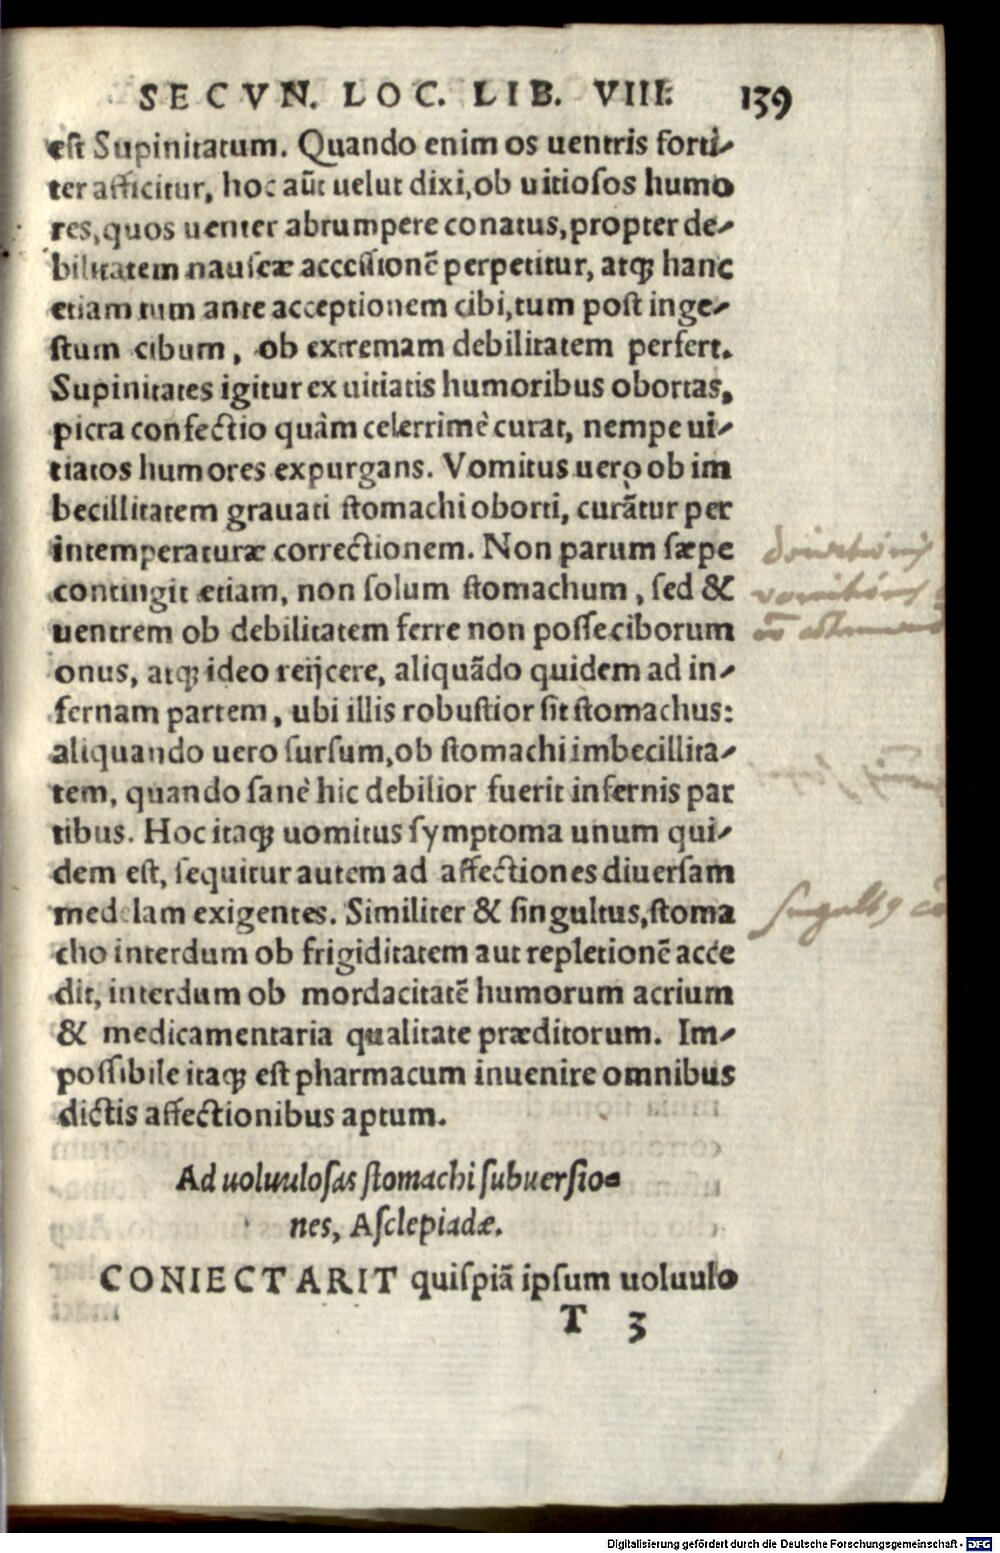 SECVN. LOC. LIB. VIII. 139
est Supinitatum. Quando enim os uentris forti-
ter afficitur, hoc aūt uelut dixi, ob uitiosos humo
res, quos uenter abrumpere conatus, propter de-
bilitatem nauseæ accessionē perpetitur, atq; hanc
etiam tum ante acceptionem cibi, tum post inge-
stum cibum, ob extremam debilitatem perfert.
Supinitates igitur ex uitiatis humoribus obortas,
picra confectio quàm celerrimè curat, nempe ui-
tiatos humores expurgans. Vomitus uero ob im
becillitatem grauati stomachi oborti, curātur per
intemperaturæ correctionem. Non parum sæpe
contingit etiam, non solum stomachum, sed &
uentrem ob debilitatem ferre non posse ciborum
onus, atq; ideo reijcere, aliquādo quidem ad in-
fernam partem, ubi illis robustior sit stomachus:
aliquando uero sursum, ob stomachi imbecillita-
tem, quando sanè hic debilior fuerit infernis par
tibus. Hoc itaq; uomitus symptoma unum qui-
dem est, sequitur autem ad affectiones diuersam
medelam exigentes. Similiter & singultus, stoma
cho interdum ob frigiditatem aut repletionē acce
dit, interdum ob mordacitatē humorum acrium
& medicamentaria qualitate præditorum. Im-
possibile itaq; est pharmacum inuenire omnibus
dictis affectionibus aptum.
Ad uoluulosas stomachi subuersio-
nes, Asclepiadæ.
CONIECTARIT quispiā ipsum uoluulo
T 3
Digitalisierung gefördert durch die Deutsche Forschungsgemeinschaft - DFG